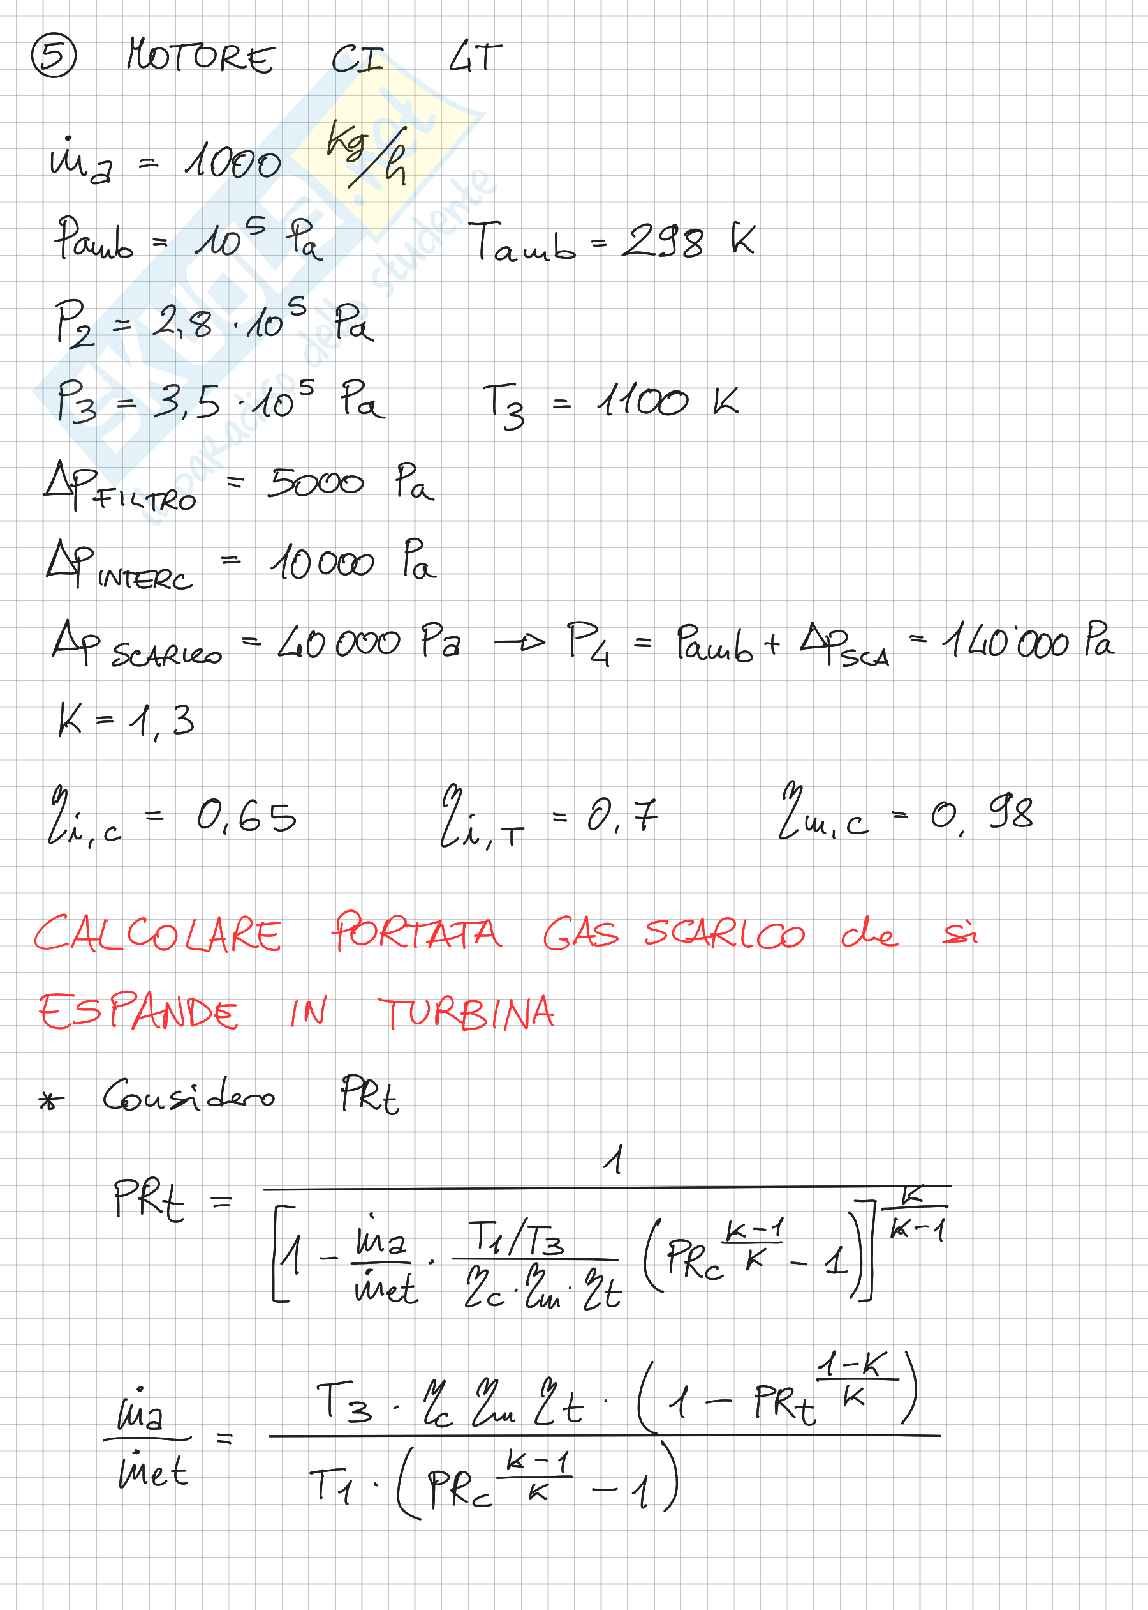 ⑤ MOTORE CI 4T
ṁa = 1000 kg/h
Pamb = 10⁵ Pa Tamb = 298 K
P2 = 2,8 · 10⁵ Pa
P3 = 3,5 · 10⁵ Pa T3 = 1100 K
ΔP FILTRO = 5000 Pa
ΔP INTERC = 10000 Pa
ΔP SCARICO = 40000 Pa → P4 = Pamb + ΔPSCA = 140'000 Pa
K = 1,3
ηi,c = 0,65 ηi,T = 0,7 ηm,c = 0,98
CALCOLARE PORTATA GAS SCARICO che si
ESPANDE IN TURBINA
* Considero PRt
PRt = 1 / [1 - ṁa/ṁet · (T1/T3)/(ηc·ηm·ηt) (PRc^((K-1)/K) - 1)]^(K/(K-1))
ṁa/ṁet = T3 · ηc ηm ηt · (1 - PRt^((1-K)/K)) / T1 · (PRc^((K-1)/K) - 1)
SKUOLA.net
il paradiso dello studente